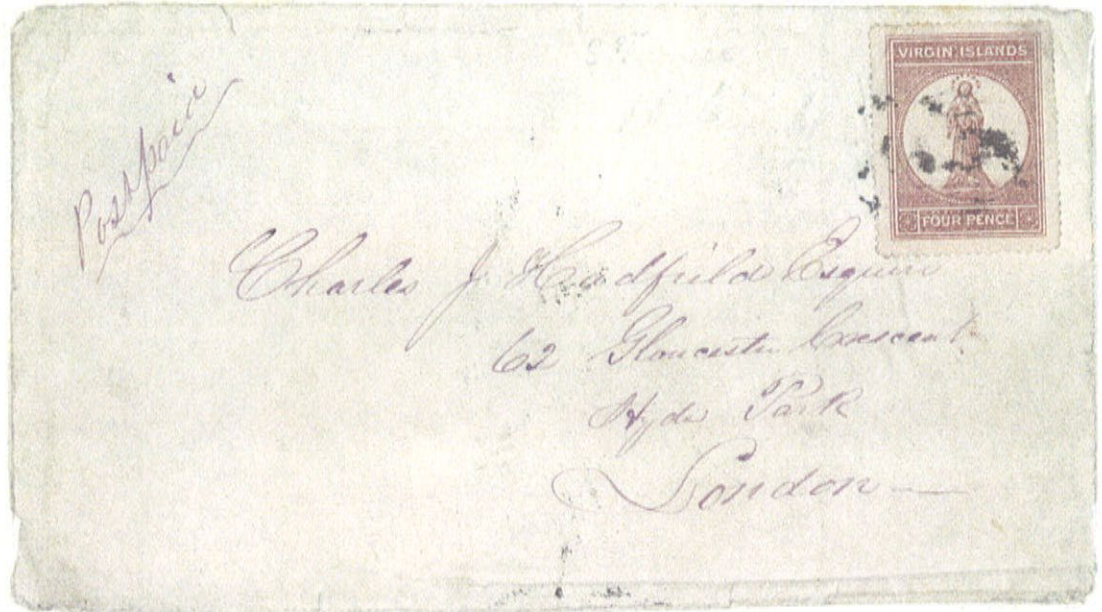 Postpaid
VIRGIN ISLANDS
FOUR PENCE
Charles J. Hadfield Esquire
62 Gloucester Crescent
Hyde Park
London